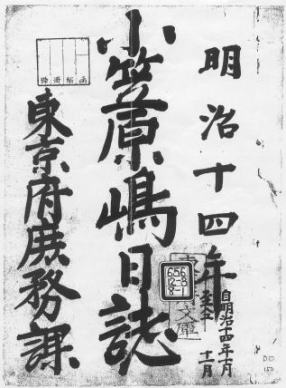 明治十四年
自明治十四年十月
十一月
小笠原嶋日誌
東京府庶務課
文庫